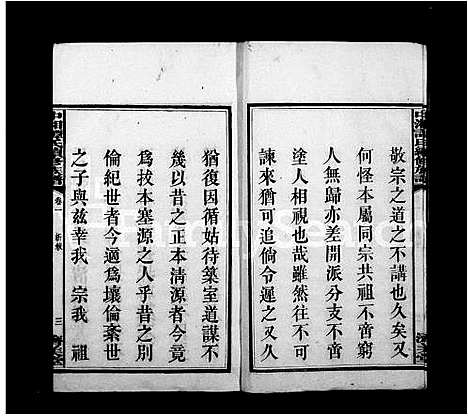 敬宗之道之不講也久矣又
何怪本屬同宗共祖不啻窮
人無歸亦差開派分支不啻
塗人相視也哉雖然往不可
諫來猶可追倘令遲之又久
猶復因循姑待築室道謀不
幾以昔之正本清源者今竟
為拔本塞源之人乎昔之別
倫紀世者今適為壞倫紊世
之子與茲幸我 宗我 祖
卷一
三
FamilySearch